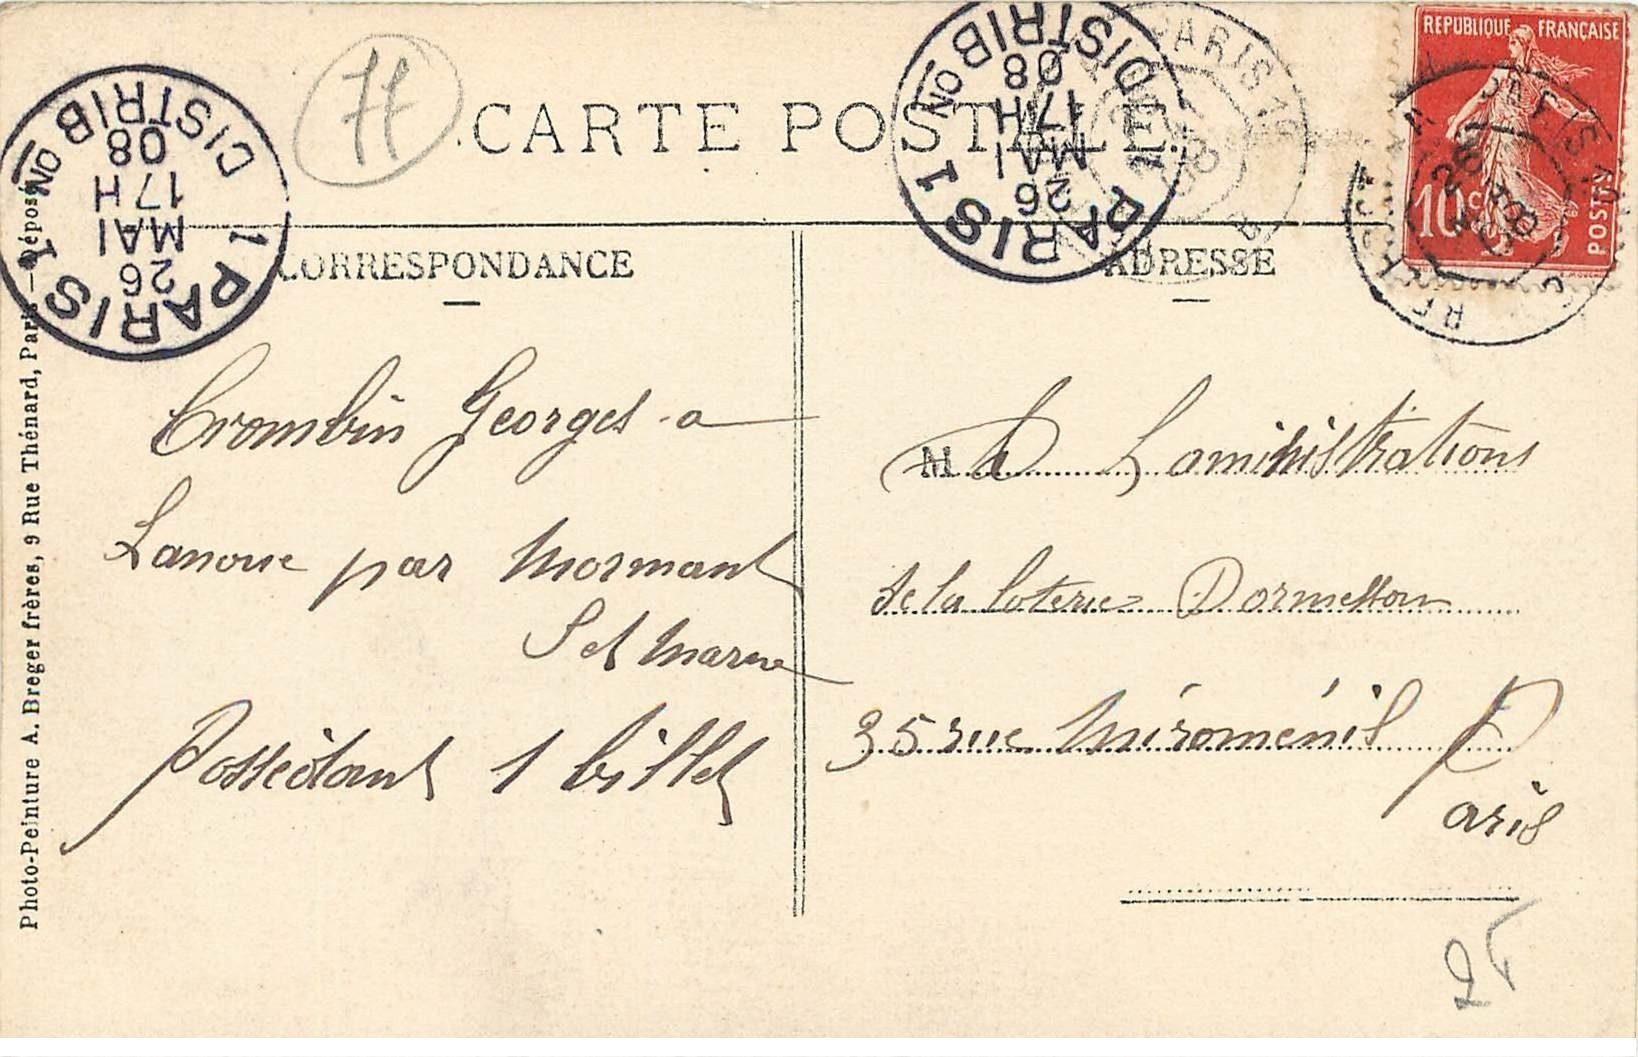 77
CARTE POSTALE
REPUBLIQUE FRANÇAISE
10 c
POSTES
1 PARIS 1
26
MAI
17H
08
DISTRIB ON
1 PARIS 1
26
MAI
17H
08
DISTRIB ON
PARIS
CORRESPONDANCE
Crombin Georges a
Lanoue par Mormant
S et Marne
Possédant 1 billet
ADRESSE
M
a Laministrations
de la loterie Dormesson
35 rue Miroménil P
Paris
Photo-Peinture A. Breger frères, 9 Rue Thénard, Paris — Déposé